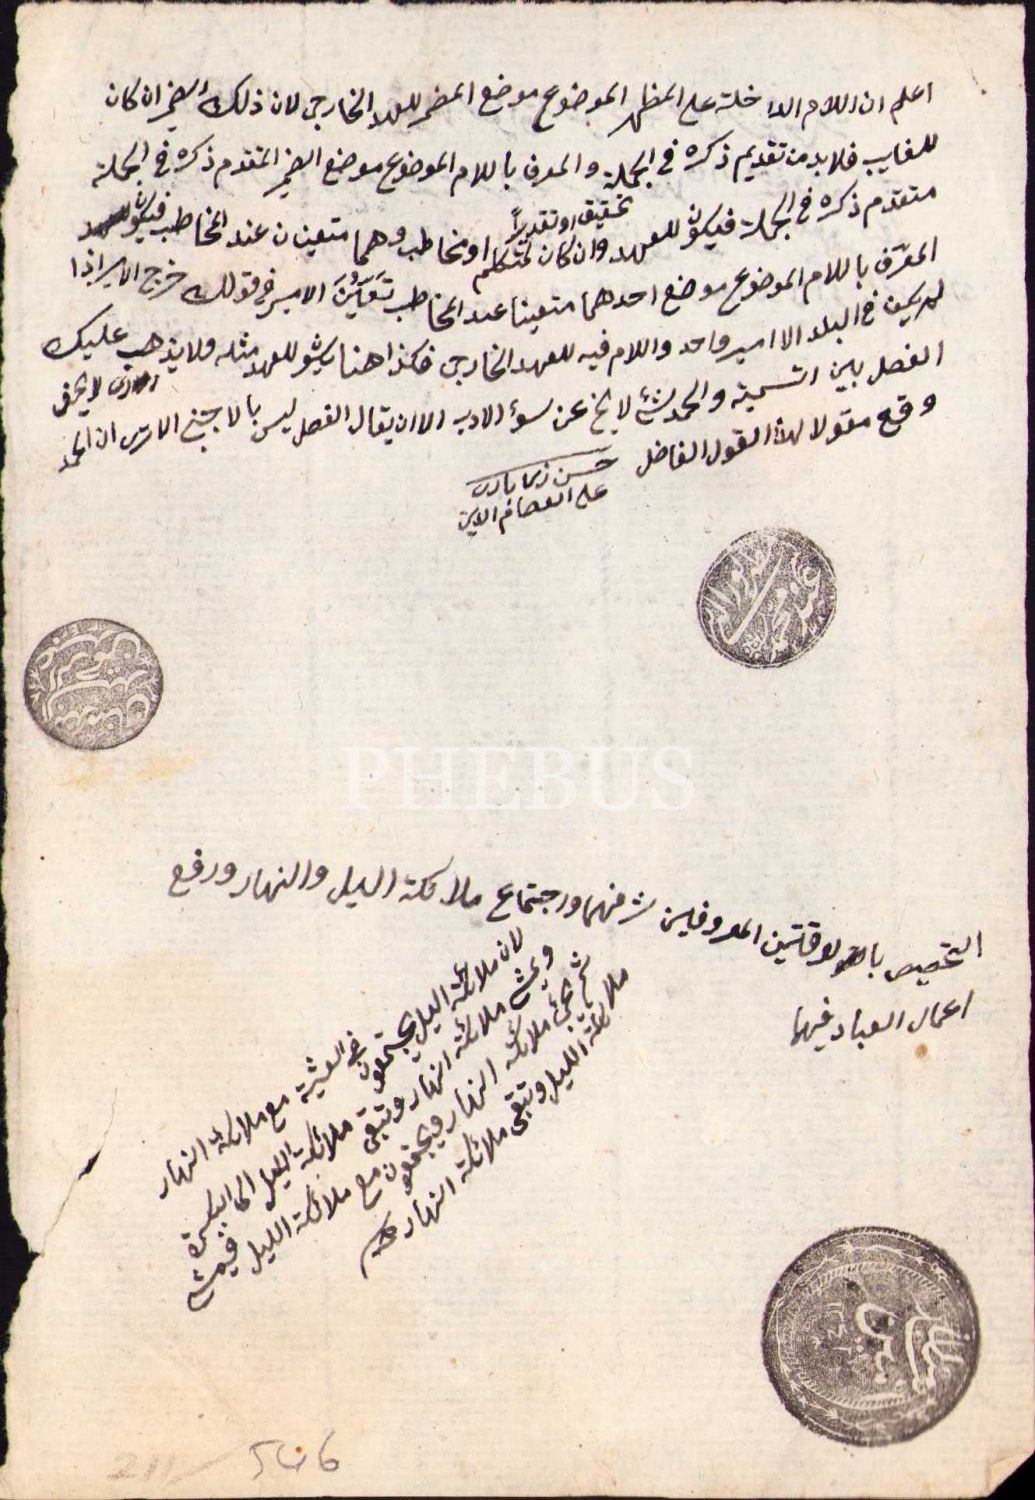 اعلم ان اللام الداخلة على المظهر الموضوع موضع المضمر للعهد الخارجي لان ذلك الضمير ان كان
للغايب فلا بد من تقديم ذكره في الجملة والمعرف باللام الموضوع موضع الضمير المتقدم ذكره في الجملة
تحقيقا او تقديراً
متقدم ذكره في الجملة فيكون للعهد وان كان لمتكلم او مخاطب وهما متعينان عند المخاطب فيكون
المعرّف باللام الموضوع موضع احدهما متعينا عند المخاطب تعيّن الامير في قولك خرج الامير اذا
لم يكن في البلد الا امير واحد واللام فيه للعهد الخارجي فكذا هنا يكون للعهد مثله ولا يذهب عليك
الفصل بين التسمية والحمد شئ لا يخ عن سوء الادب الا ان يقال الفصل ليس بالاجنبي الا ترى ان الحمد
وقع مقولا لهذا القول الفاضل
حسن زيبارى
على العصام الدين
PHEBUS
التخصيص بالوقتين المعروفين لشرفهما واجتماع ملائكة الليل والنهار ورفع
اعمال العباد فيهما
لان ملائكة الليل يجتمعون
في العشية مع ملائكة النهار
ويمشى ملائكة النهار وتبقى
ملائكة الليل الى البكرة
ثم يجئ ملائكة النهار ويجتمعون
مع ملائكة الليل فيمشى
ملائكة الليل وتبقى ملائكة النهار
211/